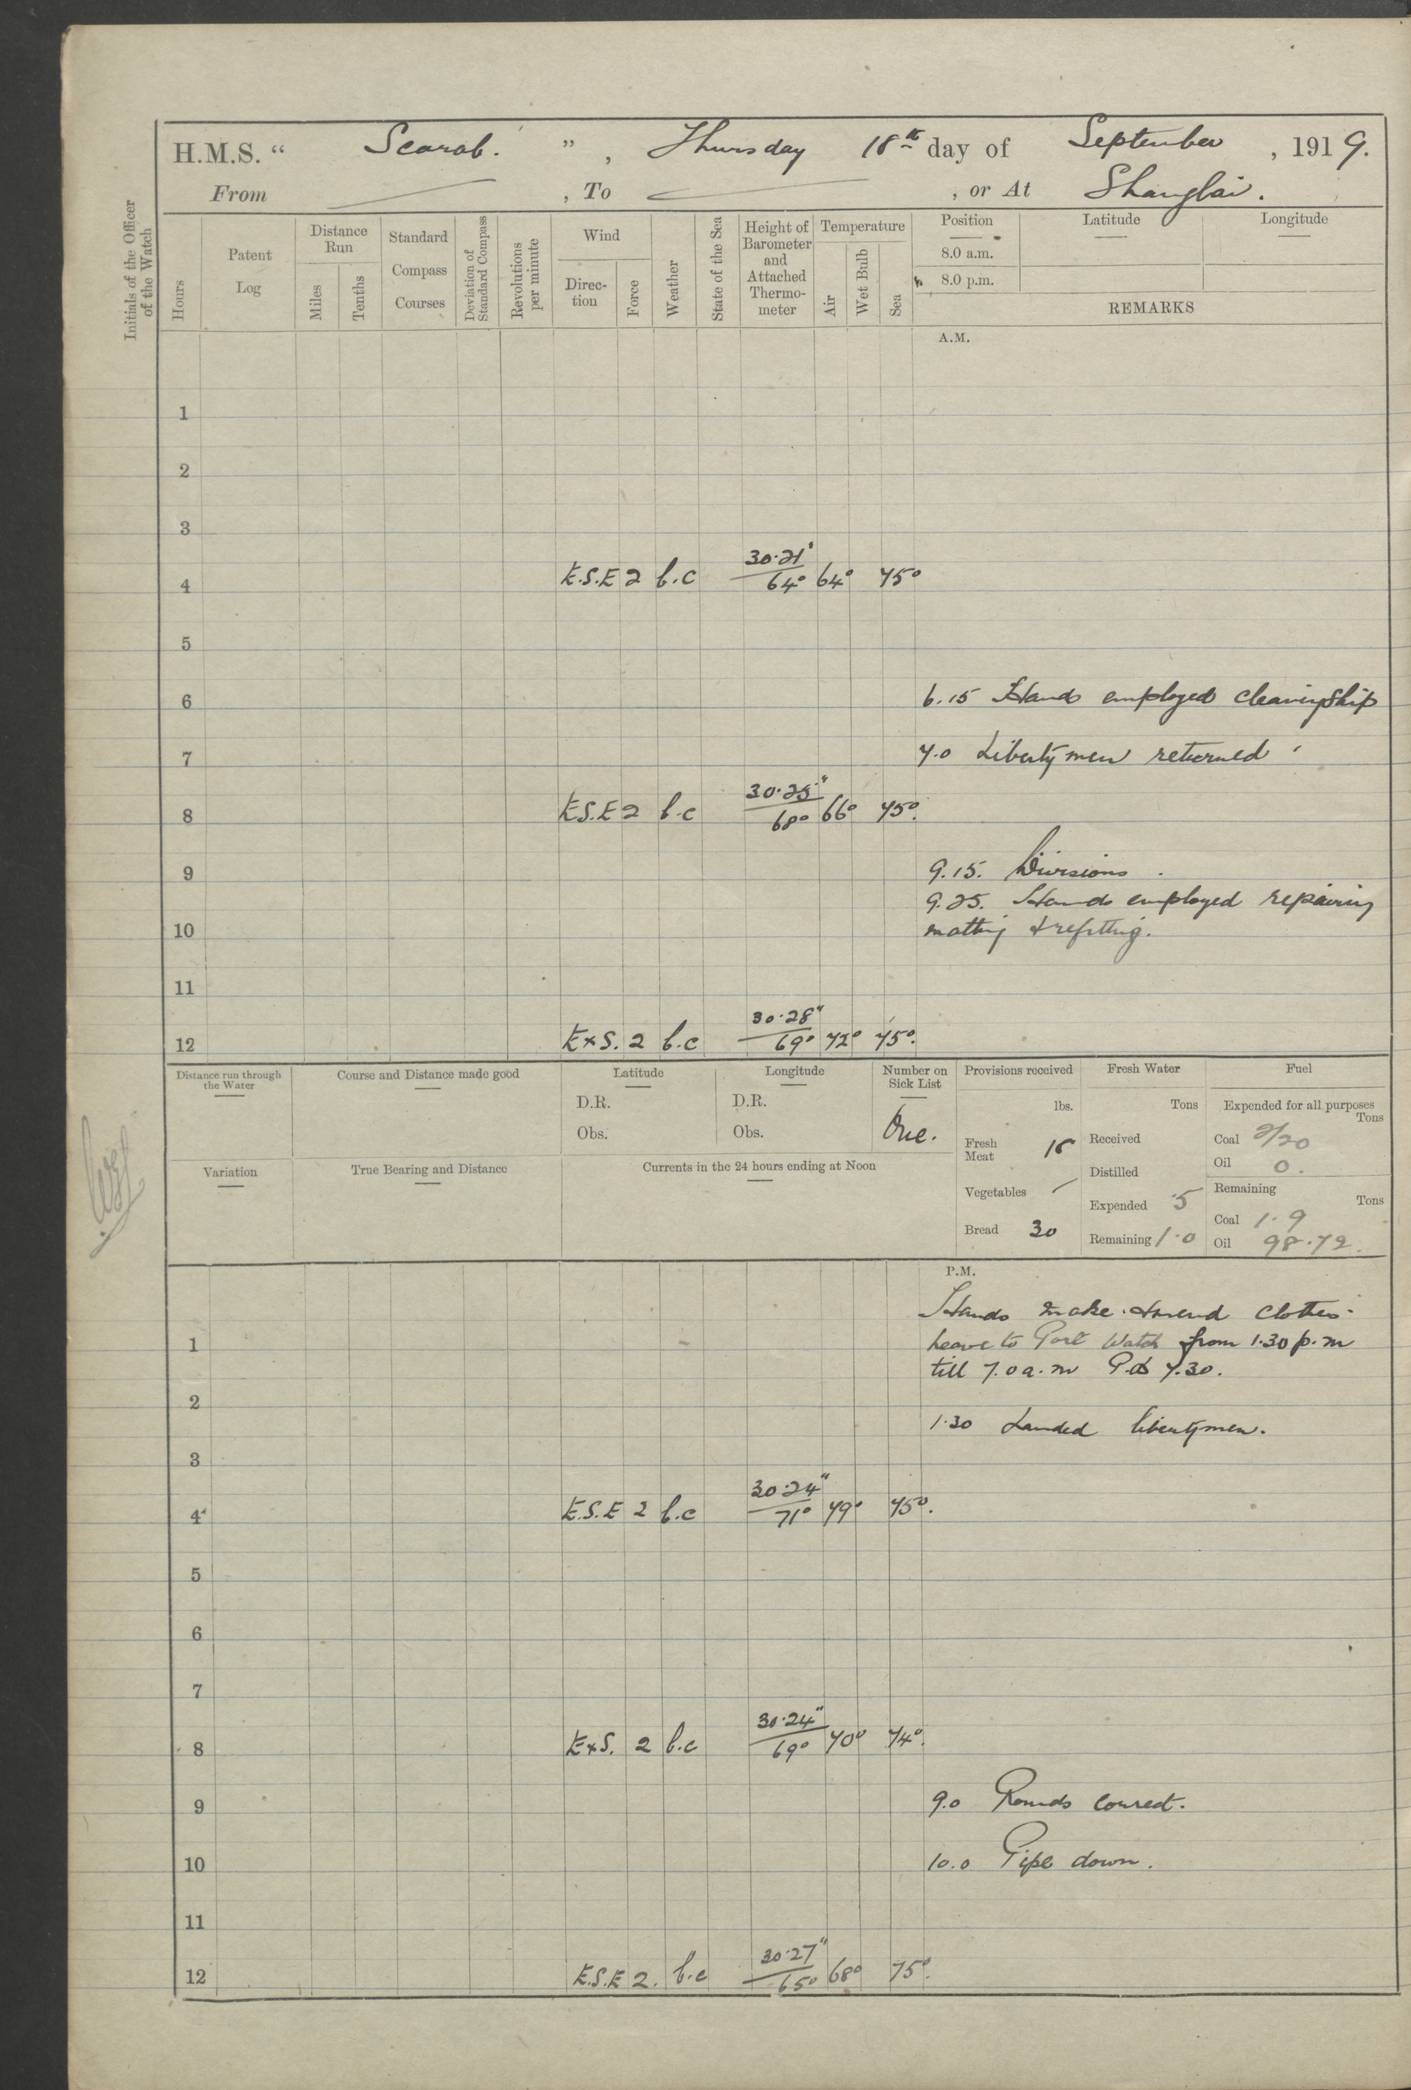 H.M.S. " Scarab. ", Thursday 18th day of September, 1919.
From , To , or At Shanghai.
Initials of the Officer of the Watch
Hours
Patent Log
Distance Run
Miles
Tenths
Standard Compass Courses
Deviation of Standard Compass
Revolutions per minute
Wind
Direction
Force
Weather
State of the Sea
Height of Barometer and Attached Thermometer
Temperature
Air
Wet Bulb
Sea
Position Latitude Longitude
8.0 a.m.
8.0 p.m.
REMARKS
A.M.
1
2
3
4 E.S.E 2 b.c 30.21" 64° 64° 75°
5
6 6.15 Hands employed cleaning ship
7 7.0 Liberty men returned
8 E.S.E 2 b.c 30.25" 68° 66° 75°.
9 9.15. Divisions.
9.25. Hands employed repairing
10 matting & refitting.
11
12 E x S. 2 b.c 30.28" 69° 72° 75°.
Distance run through the Water
Course and Distance made good
Latitude
D.R.
Obs.
Longitude
D.R.
Obs.
Number on Sick List
One.
Variation
True Bearing and Distance
Currents in the 24 hours ending at Noon
Provisions received
lbs.
Fresh Meat 18
Vegetables
Bread 30
Fresh Water
Tons
Received
Distilled
Expended .5
Remaining 1.0
Fuel
Expended for all purposes
Tons
Coal 2/20
Oil 0.
Remaining
Tons
Coal 1.9
Oil 98.72.
P.M.
Hands make & mend clothes.
1 Leave to Port Watch from 1.30 p.m
till 7.0 a.m P.Os 7.30.
2 1.30 Landed libertymen.
3
4 E.S.E 2 b.c 30.24" 71° 79° 75°.
5
6
7
8 E x S. 2 b.c 30.24" 69° 70° 74°.
9 9.0 Rounds correct.
10 10.0 Pipe down.
11
12 E.S.E 2. b.c 30.27" 65° 68° 75°.